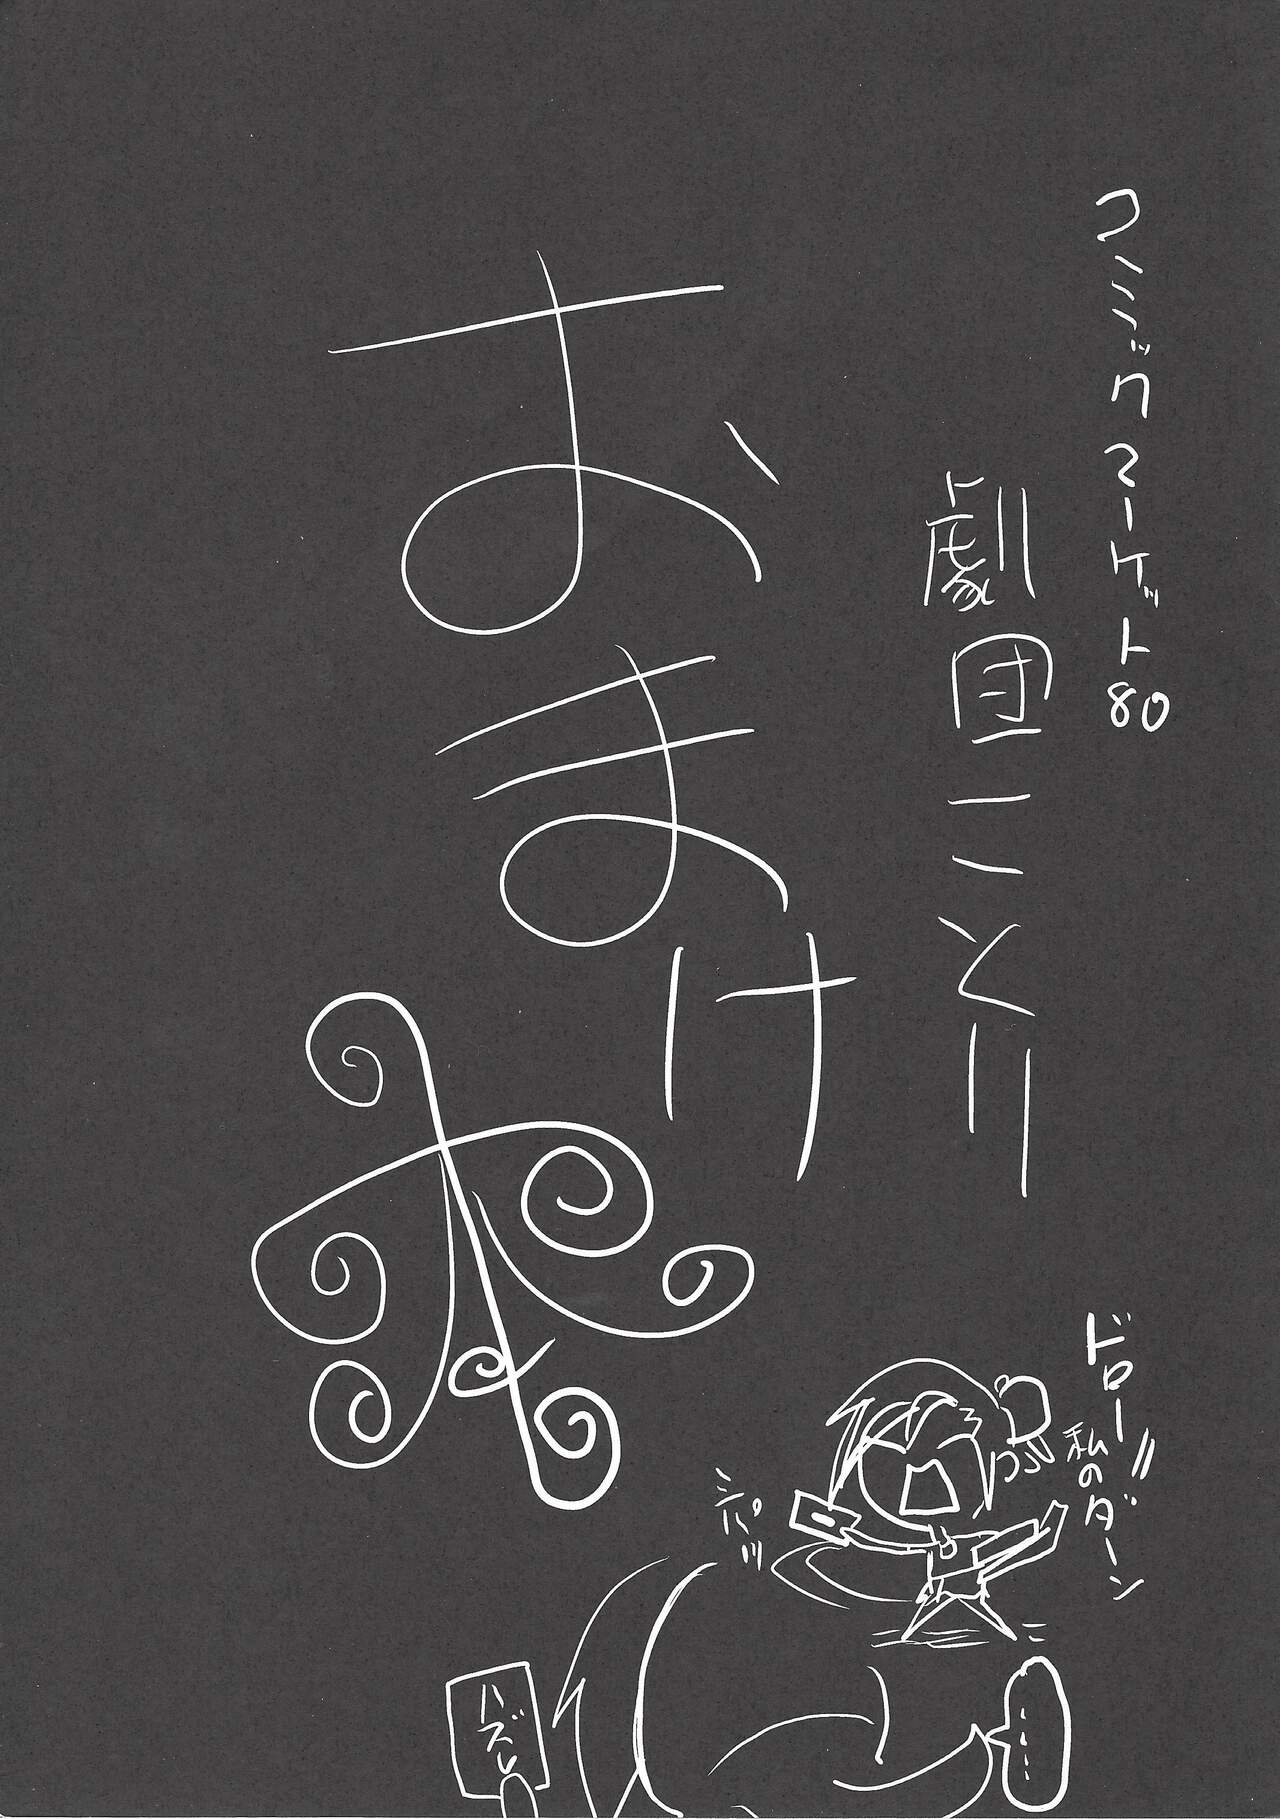 コミックマーケット80
劇団ことり
おまけ
本
ドロー!!
私のダーン
シパッ
ハズレ
……